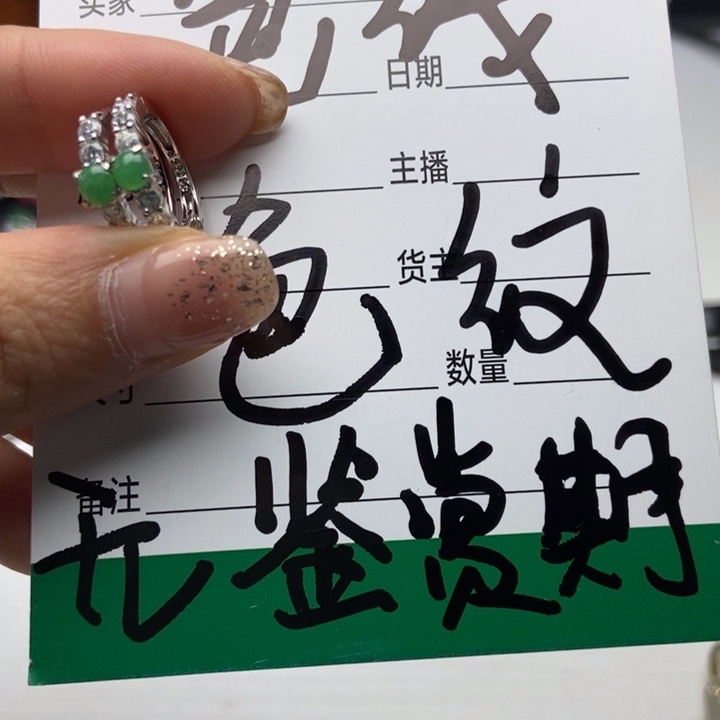 买家
日期
主播
色纹
货主
数量
备注
无鉴赏期